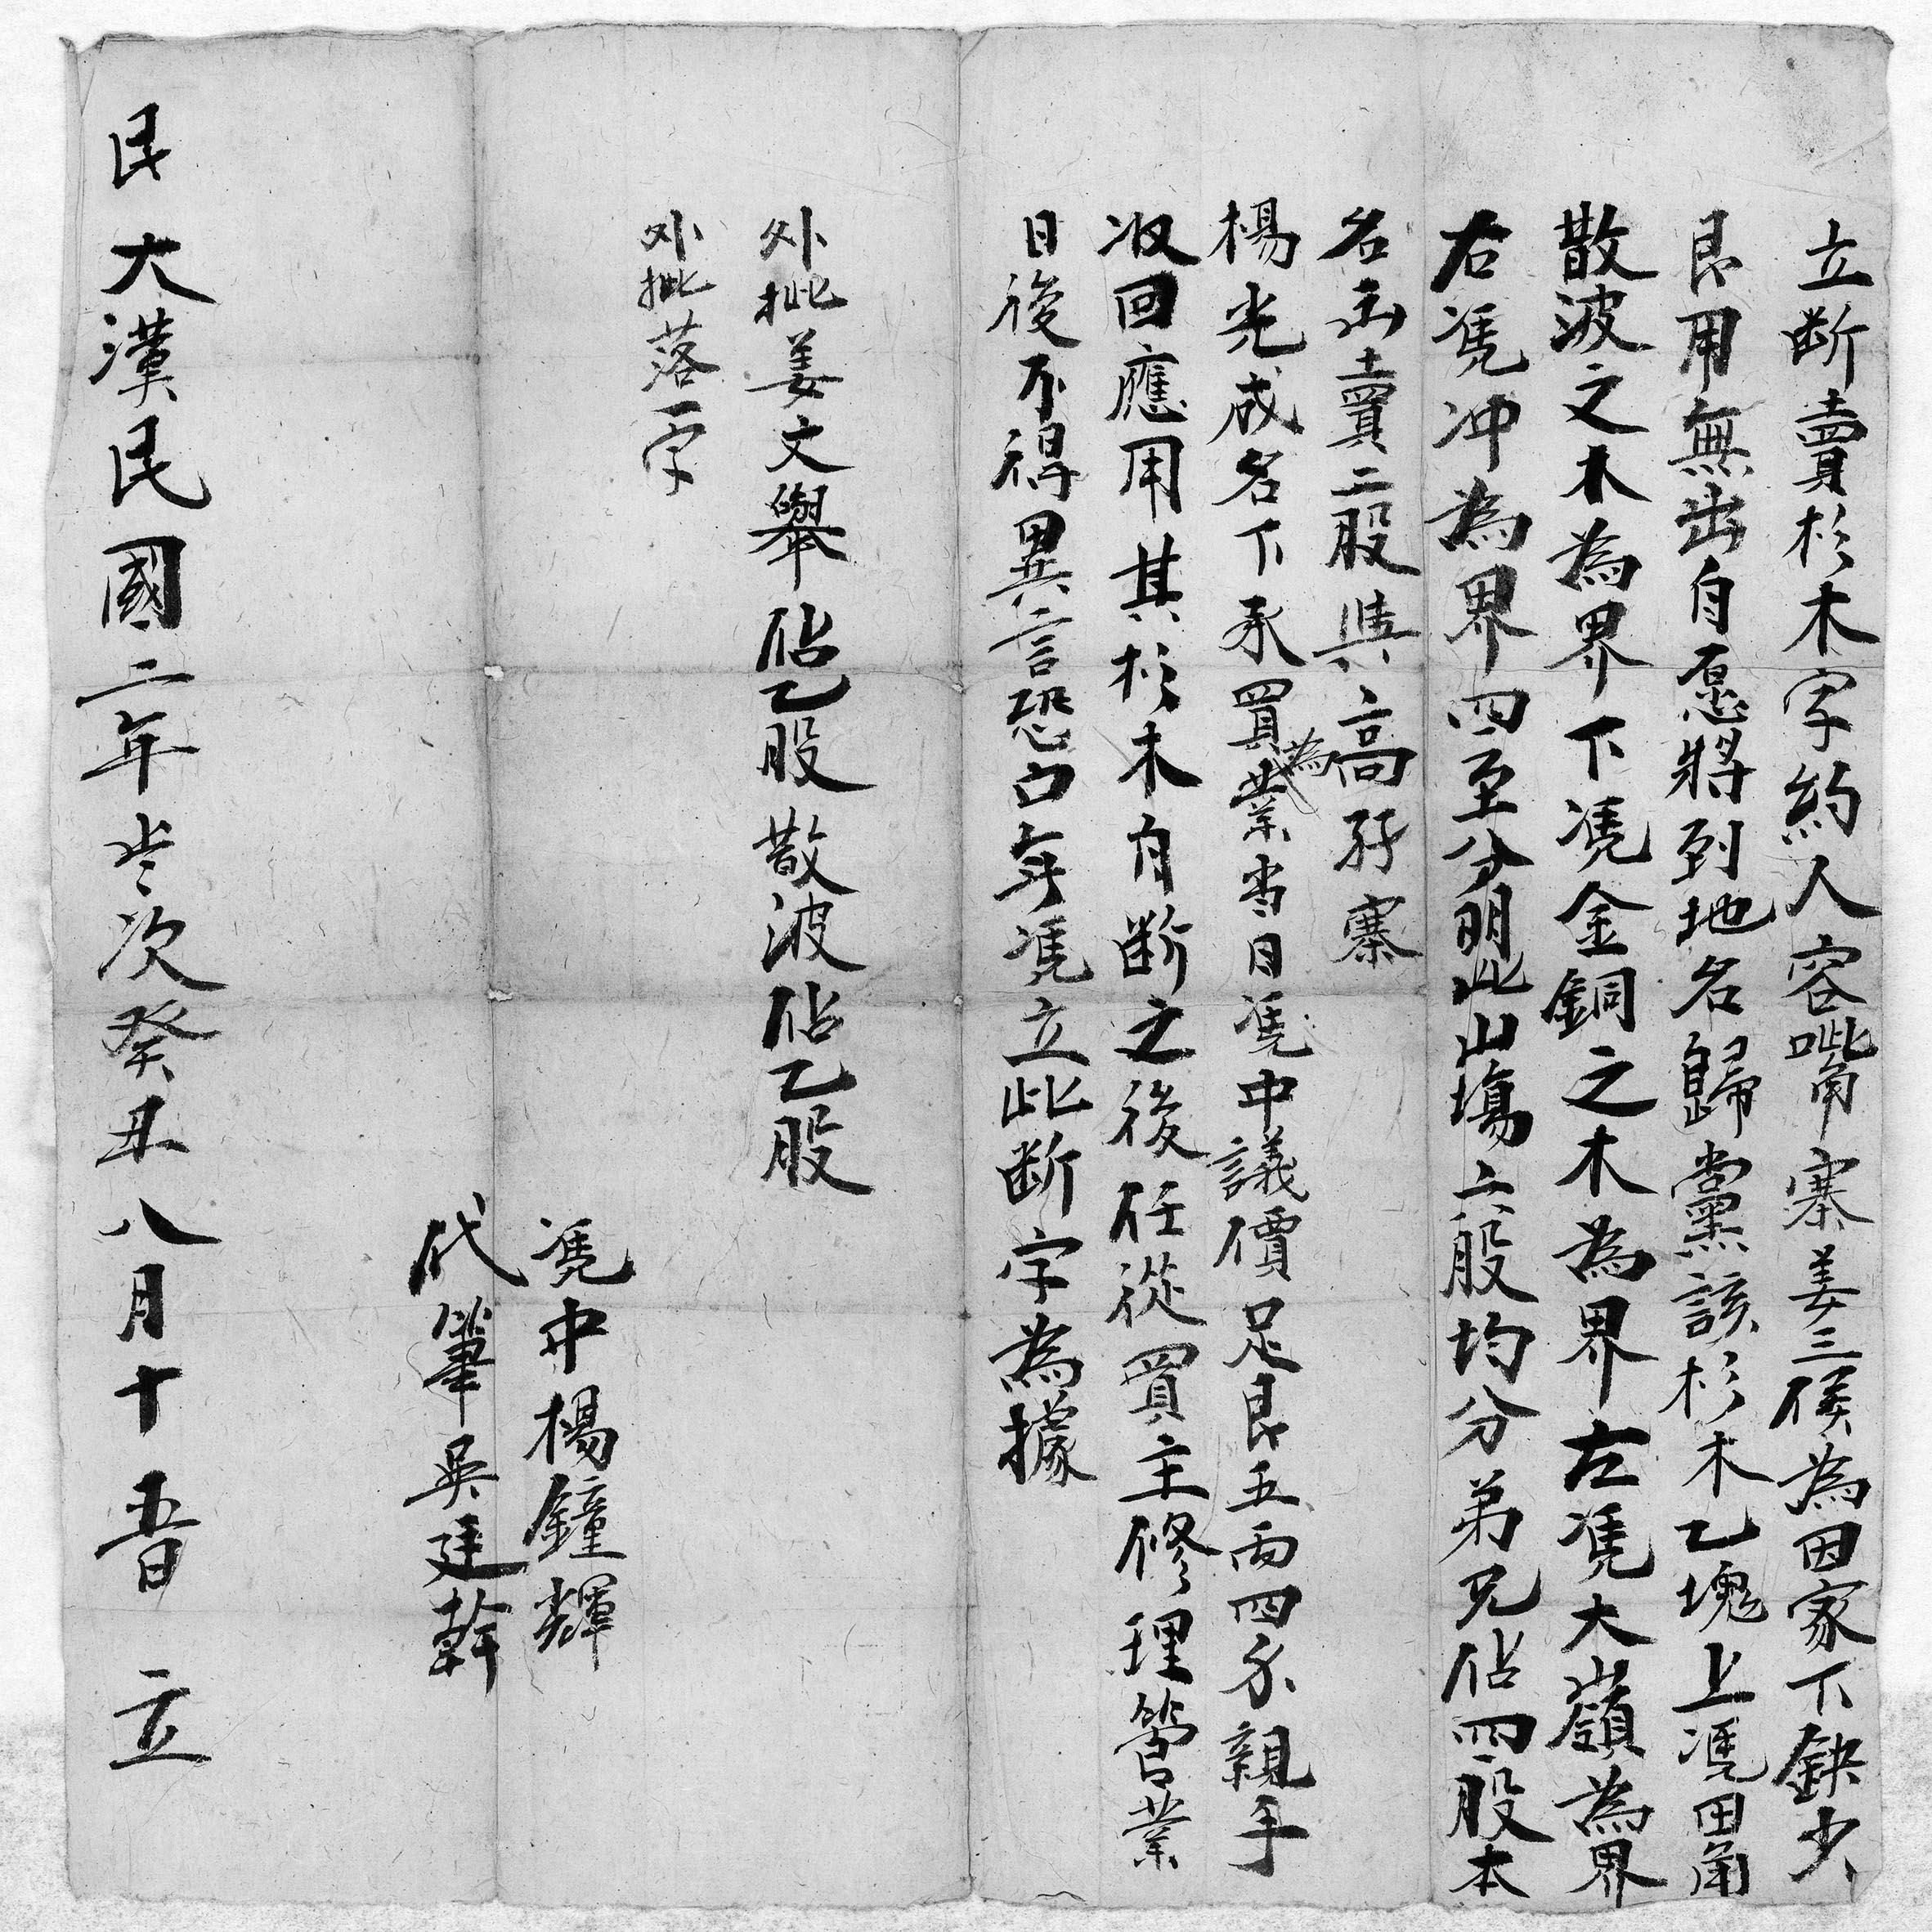 立断賣杉木字約人容嘴寨姜三侯為因家下缺少
艮用無出自愿將到地名歸黨該杉木乙塊上凴田角
散波之木為界下凴金銅之木為界左凴大嶺為界
右凴冲為界四至分明此山塲六股均分弟兄佔四股本
名出賣二股與高孖寨
楊光成名下承買為業當日凴中議價足艮五両四分親手
收回應用其杉木自断之後任從買主修理管業
日後不得異言恐口無凴立此断字為據
外批姜文舉佔乙股散波佔乙股
外批落一字
凴中楊鐘輝
代筆吳廷幹
民大漢民國二年岁次癸丑八月十五日立